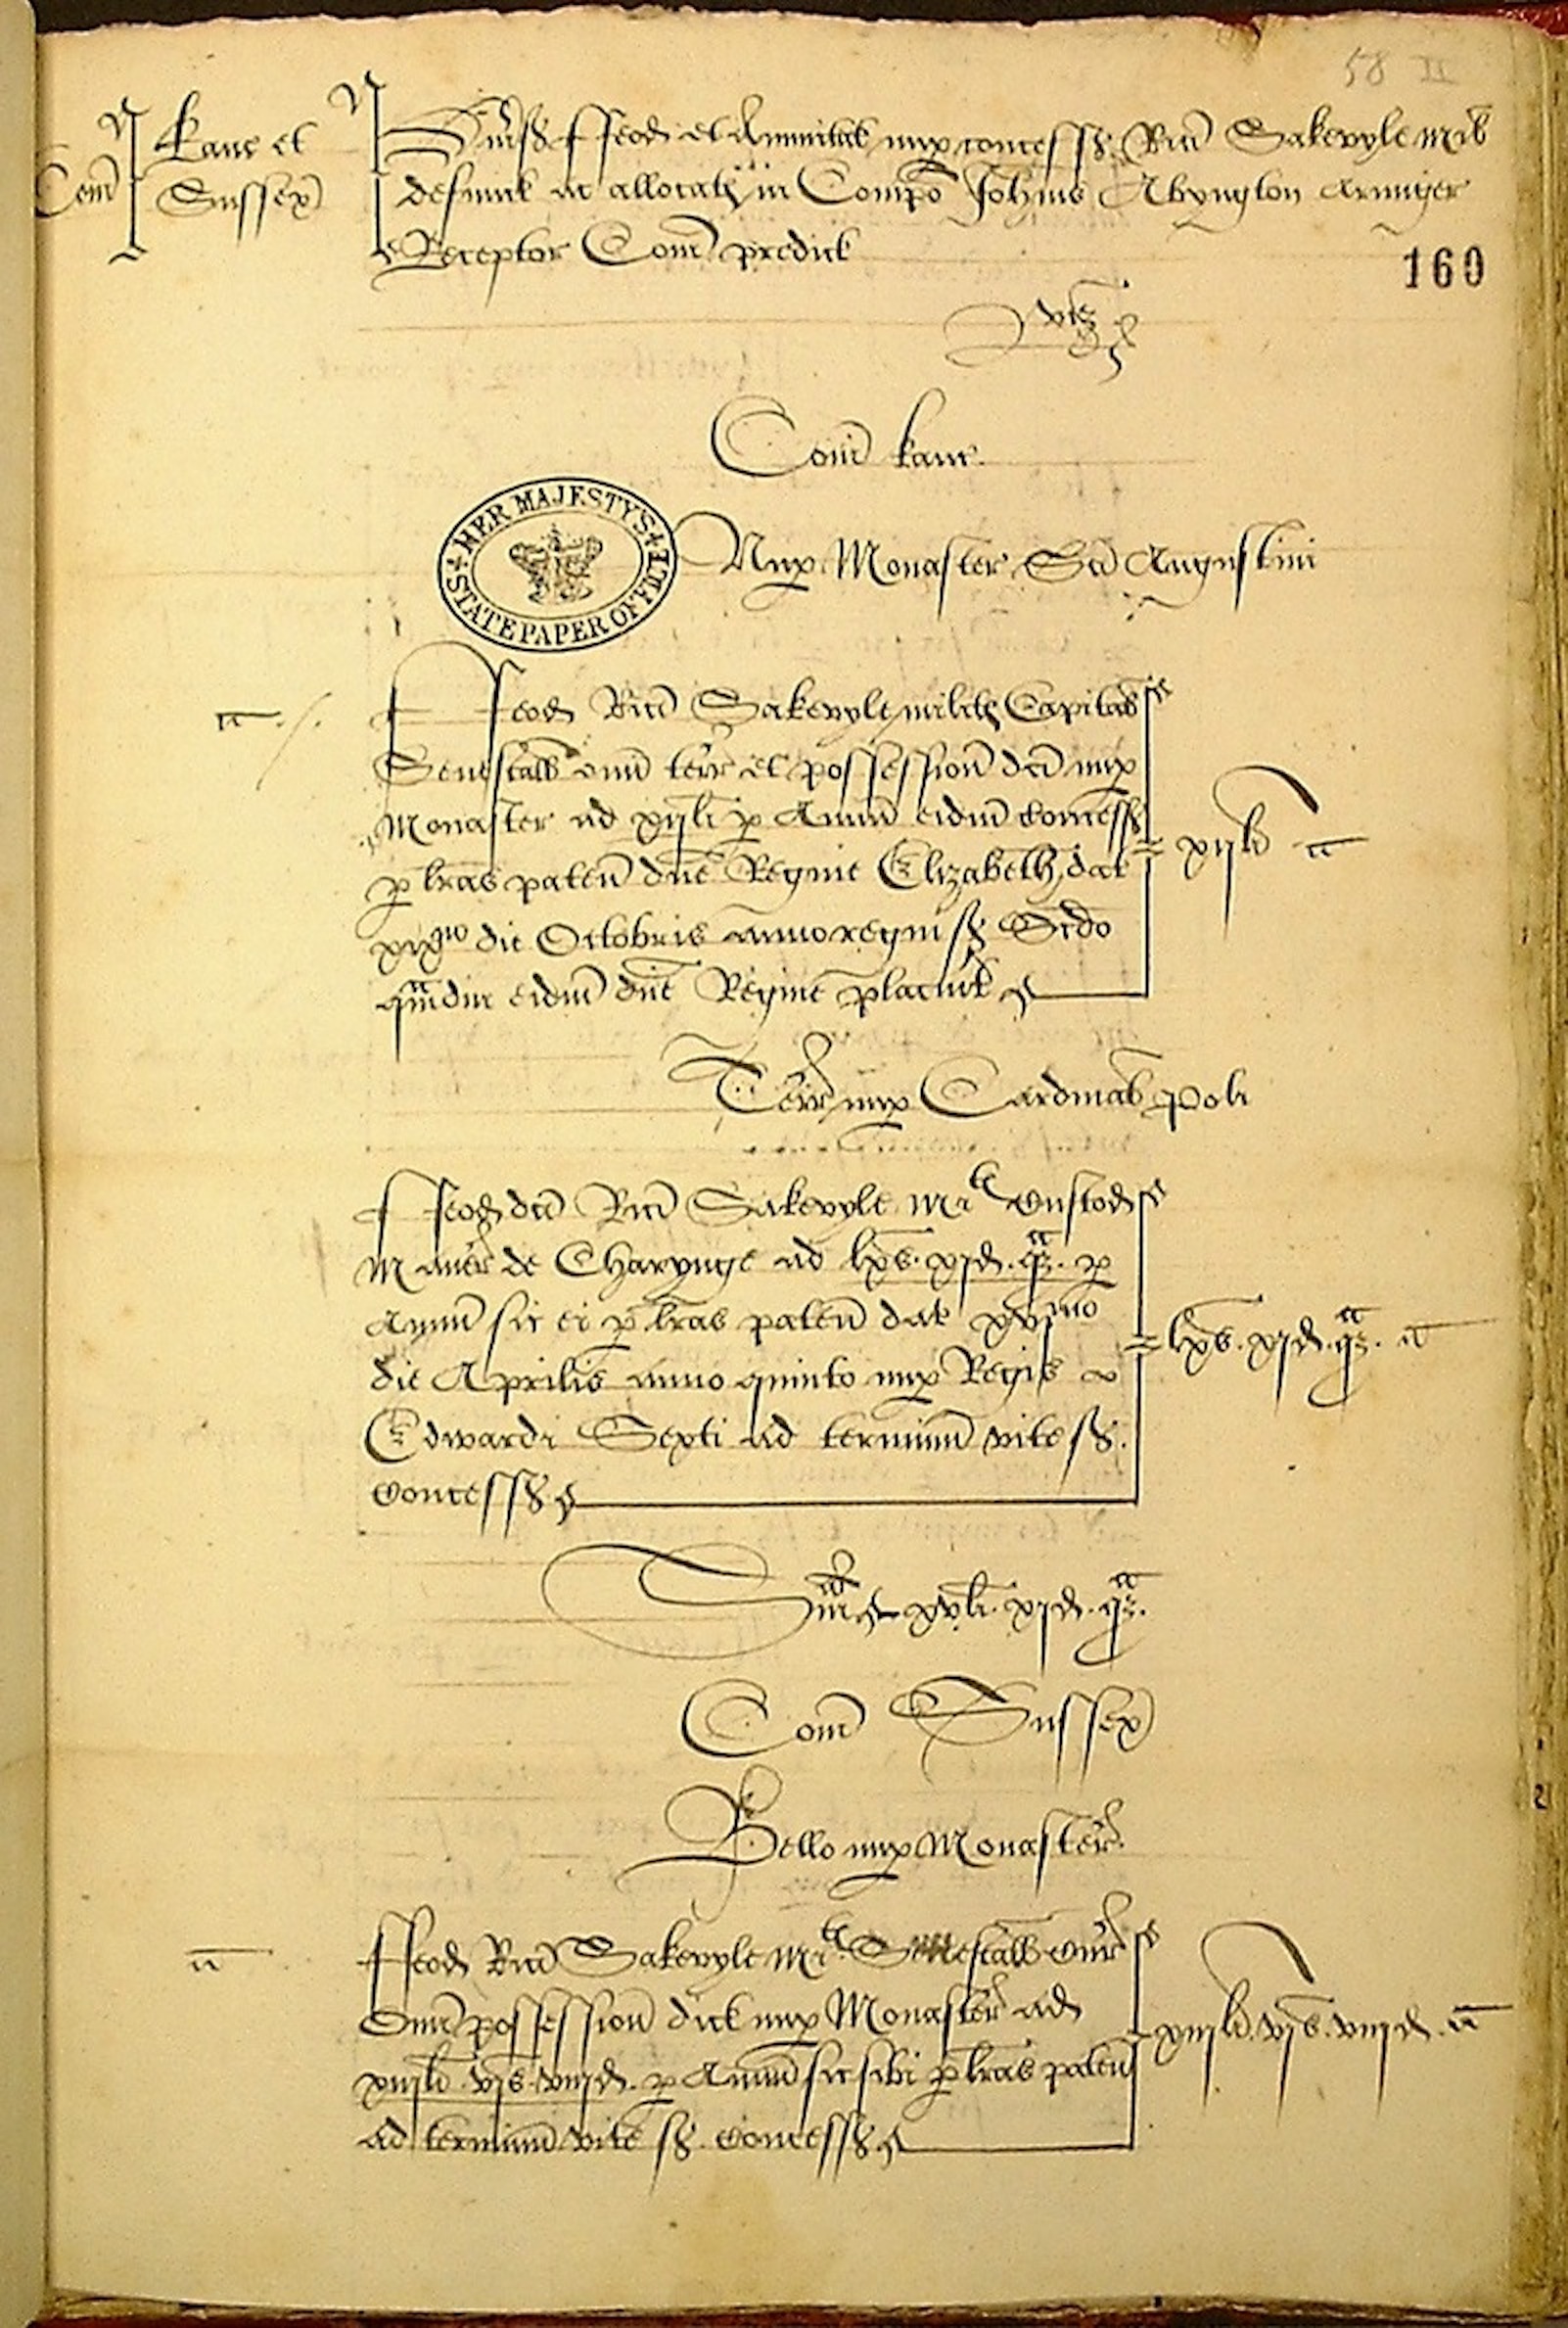 58 II
Com Kanc et
Sussex
Divss ffeod et Annuitat nup concess Rici Sakevyle Milit
defunct ac allocat in Compo Johnis Abyngton Armiger
Receptor Com predict
160
vizt
Com Kanc
HER MAJESTYS STATE PAPER OFFICE
Nup Monaster Sci Augustini
ffeod Rici Sakevyle militis Capital
Senescall omn terr et possession dci nup
Monaster ad xijli p Annu eidm concess
p lras paten dne Regine Elizabeth dat
xixno die Octobris anno regni s Scdo
qmdiu eidm dne Regine placuit
xijli
Terr nup Cardinal Poli
ffeod dci Rici Sakevyle Mil Custod
Maner de Charynge ad lxs. xjd. qz. p
Annu sic ei p lras paten dat xvjmo
die Aprilis anno quinto nup Regis
Edwardi Sexti ad terminu vite s.
concess
lxs. xjd. qz.
Sma xvli. xjd. qz.
Com Sussex
Bello nup Monaster
ffeod Rici Sakevyle Mil Senescall Cur
Omn possession dict nup Monaster ad
xiijli. vjs. viijd. p Annu sic sibi p lras paten
ad terminu vite s. concess
xiijli. vjs. viijd.